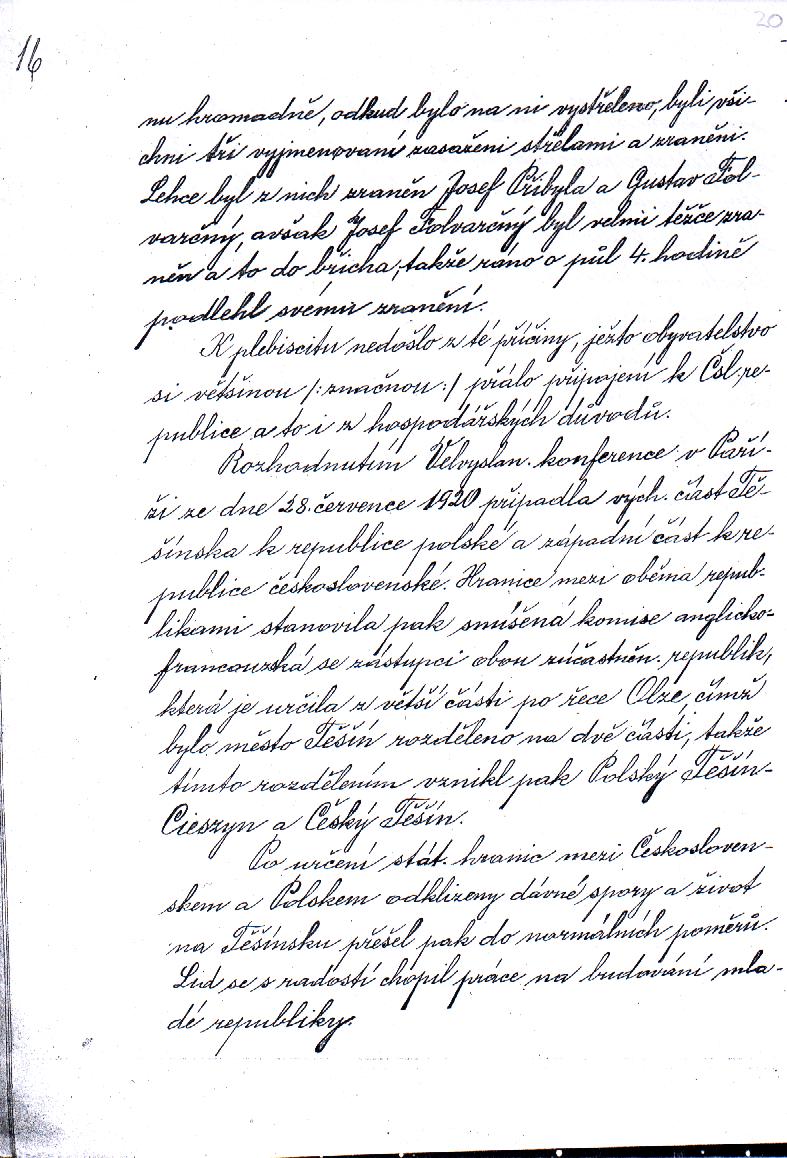 20
16
nu hromadně, odkud bylo na ni vystřeleno, byli vši-
chni tři vyjmenovaní zasaženi střelami a zraněni.
Lehce byl z nich zraněn Josef Přibyla a Gustav Fol-
varčný, avšak Josef Folvarčný byl velmi těžce zra-
něn a to do břicha, takže ráno o půl 4. hodině
podlehl svému zranění.
K plebiscitu nedošlo z té příčiny, ježto obyvatelstvo
si většinou /:značnou:/ přálo připojení k Čsl. re-
publice a to i z hospodářských důvodů.
Rozhodnutím Velvyslan. konference v Paří-
ži ze dne 28. července 1920 připadla vých. část Tě-
šínska k republice polské a západní část k re-
publice československé. Hranice mezi oběma repub-
likami stanovila pak smíšená komise anglicko-
francouzská se zástupci obou zúčastněn. republik,
která je určila z větší části po řece Olze, čímž
bylo město Těšín rozděleno na dvě části, takže
tímto rozdělením vznikl pak Polský Těšín-
Cieszyn a Český Těšín.
Po určení stát. hranic mezi Českosloven-
skem a Polskem odklizeny dávné spory a život
na Těšínsku přešel pak do normálních poměrů.
Lid se s radostí chopil práce na budování mla-
dé republiky.